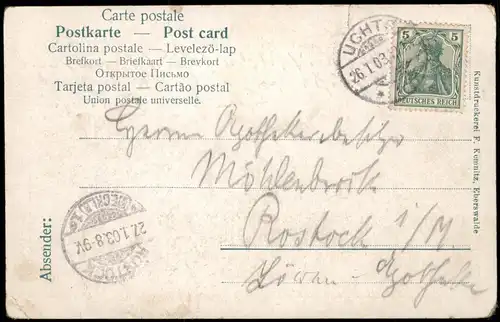 Carte postale
Postkarte — Post card
Cartolina postale — Levelező-lap
Brefkort — Briefkaart — Brevkort
Открытое Письмо
Tarjeta postal — Cartão postal
Union postale universelle.
UCHT
26.1.03
5 5
DEUTSCHES REICH
Kunstdruckerei F. Komnitz, Eberswalde
Herrn Apothekenbesitzer
Möhlenbrock
Rostock i/M
Löwen-Apotheke
Absender:
ROSTOCK (MECKLB) 1
27.1.03.8-9V.